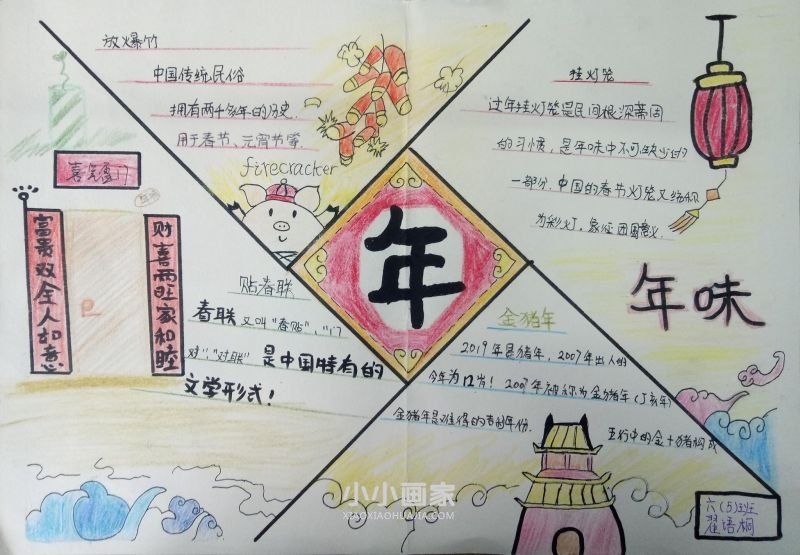 放火爆竹
中国传统民俗
拥有两千多年的历史.
用于春节、元宵节等
firecracker
挂灯笼
过年挂灯笼是民间根深蒂固
的习惯，是年味中不可缺少的
一部分.中国的春节灯笼又统称
为彩灯，象征团圆意义.
喜气盈门
富贵双全人如意
财喜两旺家和睦
年
年味
贴春联
春联又叫"春贴"、"门
对"、"对联"是中国特有的
文学形式！
金猪年
2019年是猪年，2007年出人的
今年为12岁！2007年被称为金猪年(丁亥年)
金猪年是难得的有的年份.
五行中的金+猪构成
六(5)班
翟语桐
小小画家
XIAOXIAOHUAJIA.COM